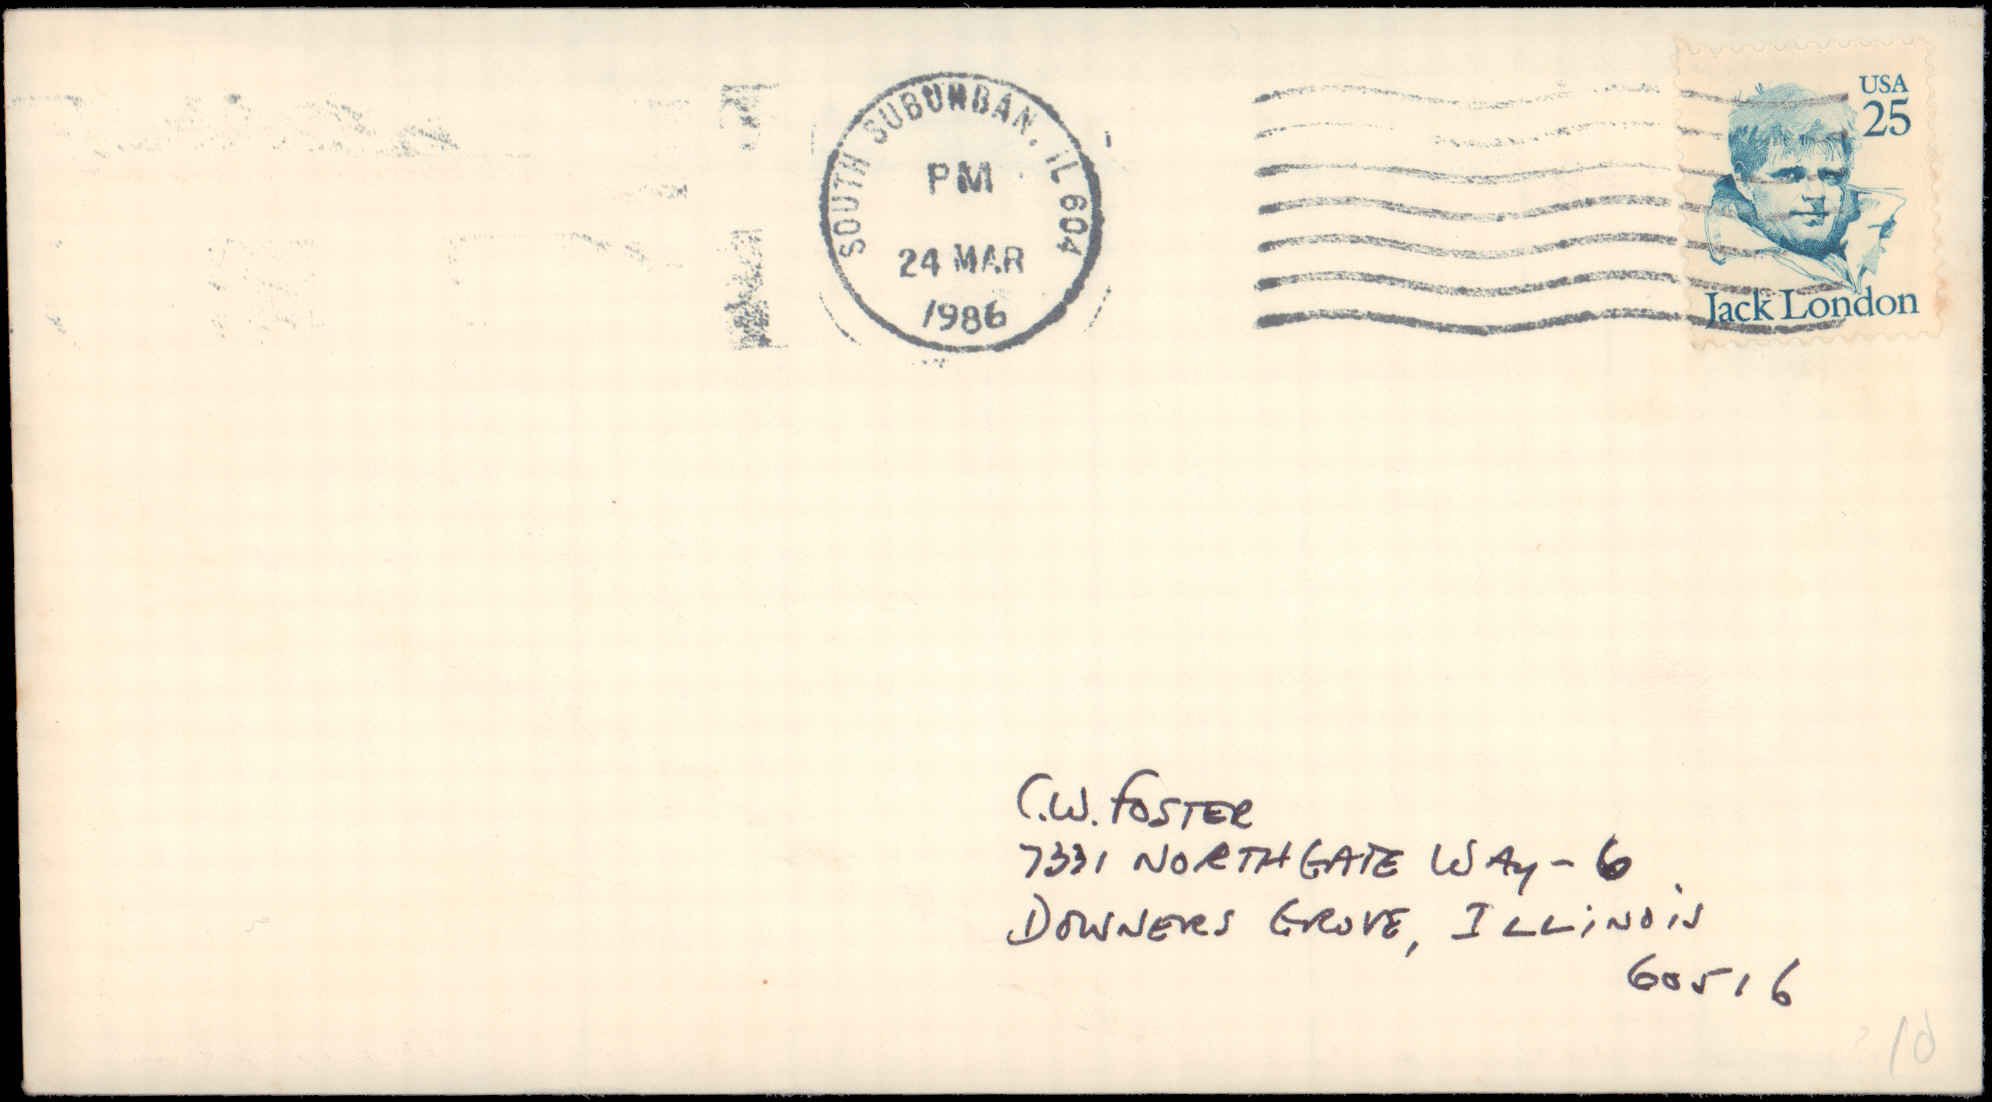 SOUTH SUBURBAN, IL 604
PM
24 MAR
1986
USA
25
Jack London
C.W. FOSTER
7331 NORTHGATE WAY - 6
DOWNERS GROVE, ILLINOIS
60516
10